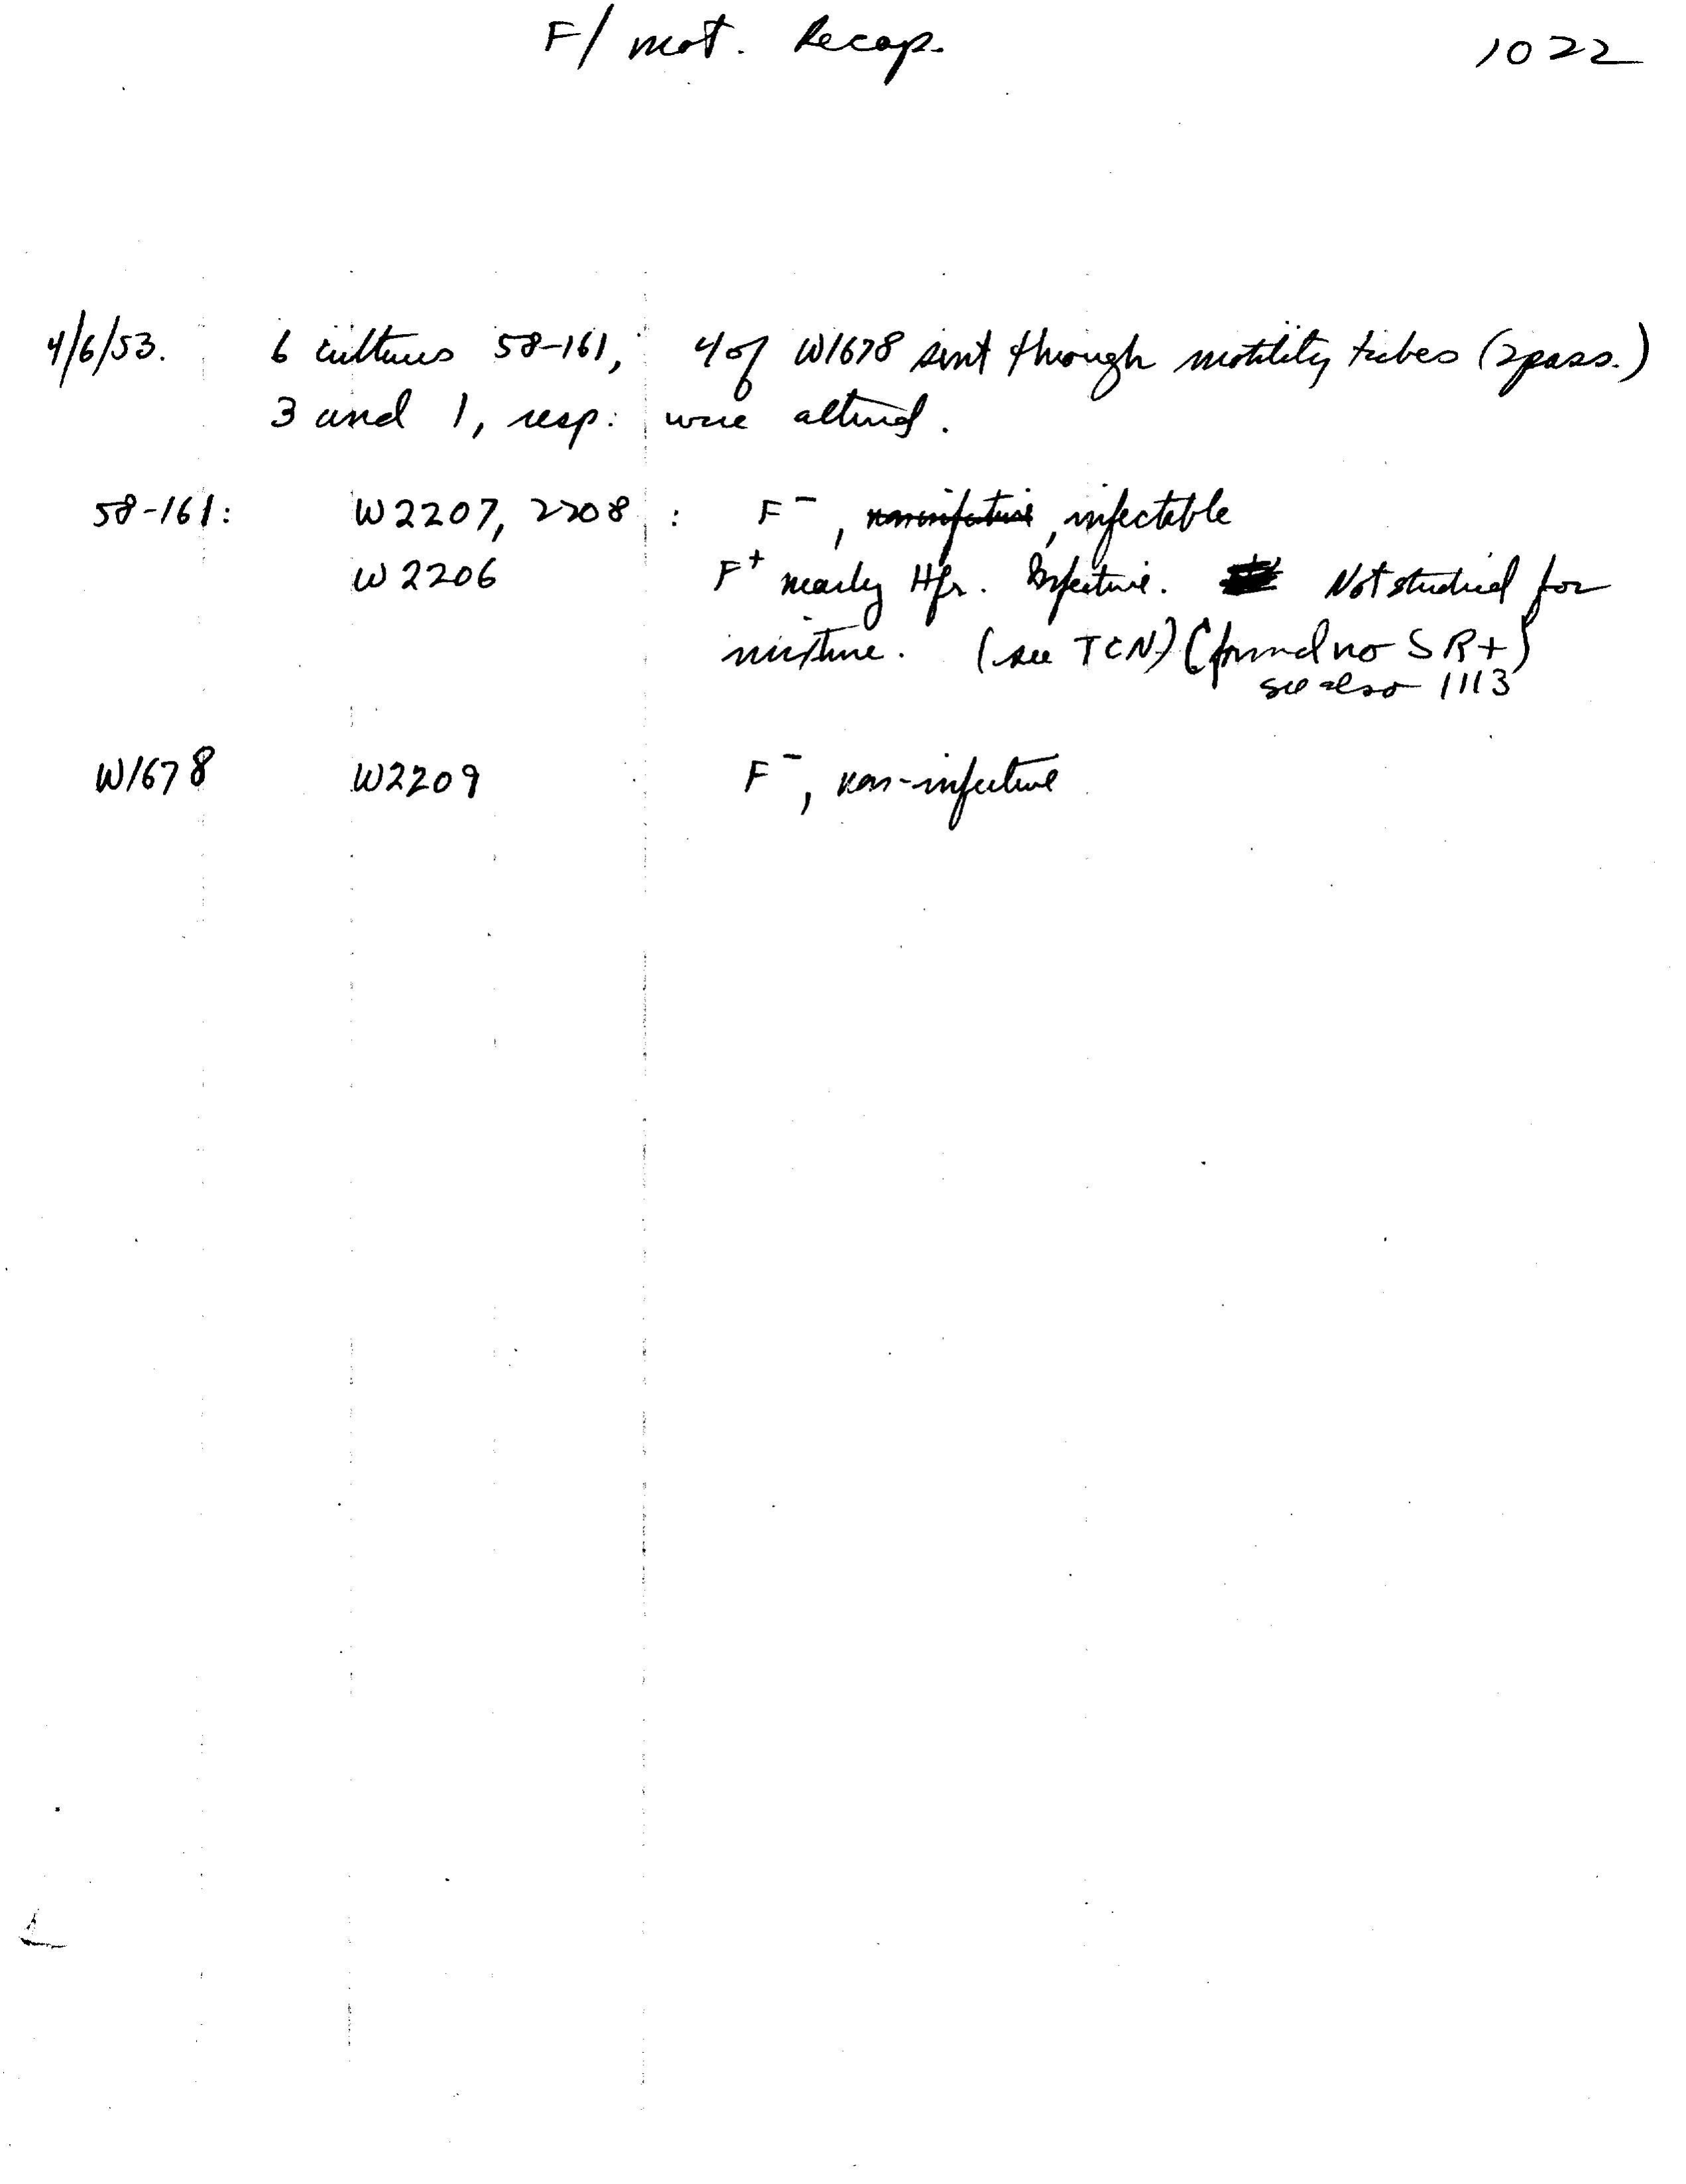 F/ mot. Recap. 1022
4/6/53. 6 cultures 58-161, 4 of W1678 sent through motility tubes (2 pass.)
3 and 1, resp. were altered.
58-161: W2207, 2208 : F⁻, noninfective, infectable
W2206 F⁺ nearly Hfr. Infective. Not studied for
mixture. (see TCN) (found no SR+)
see also 1113
W1678 W2209 F⁻, non-infective